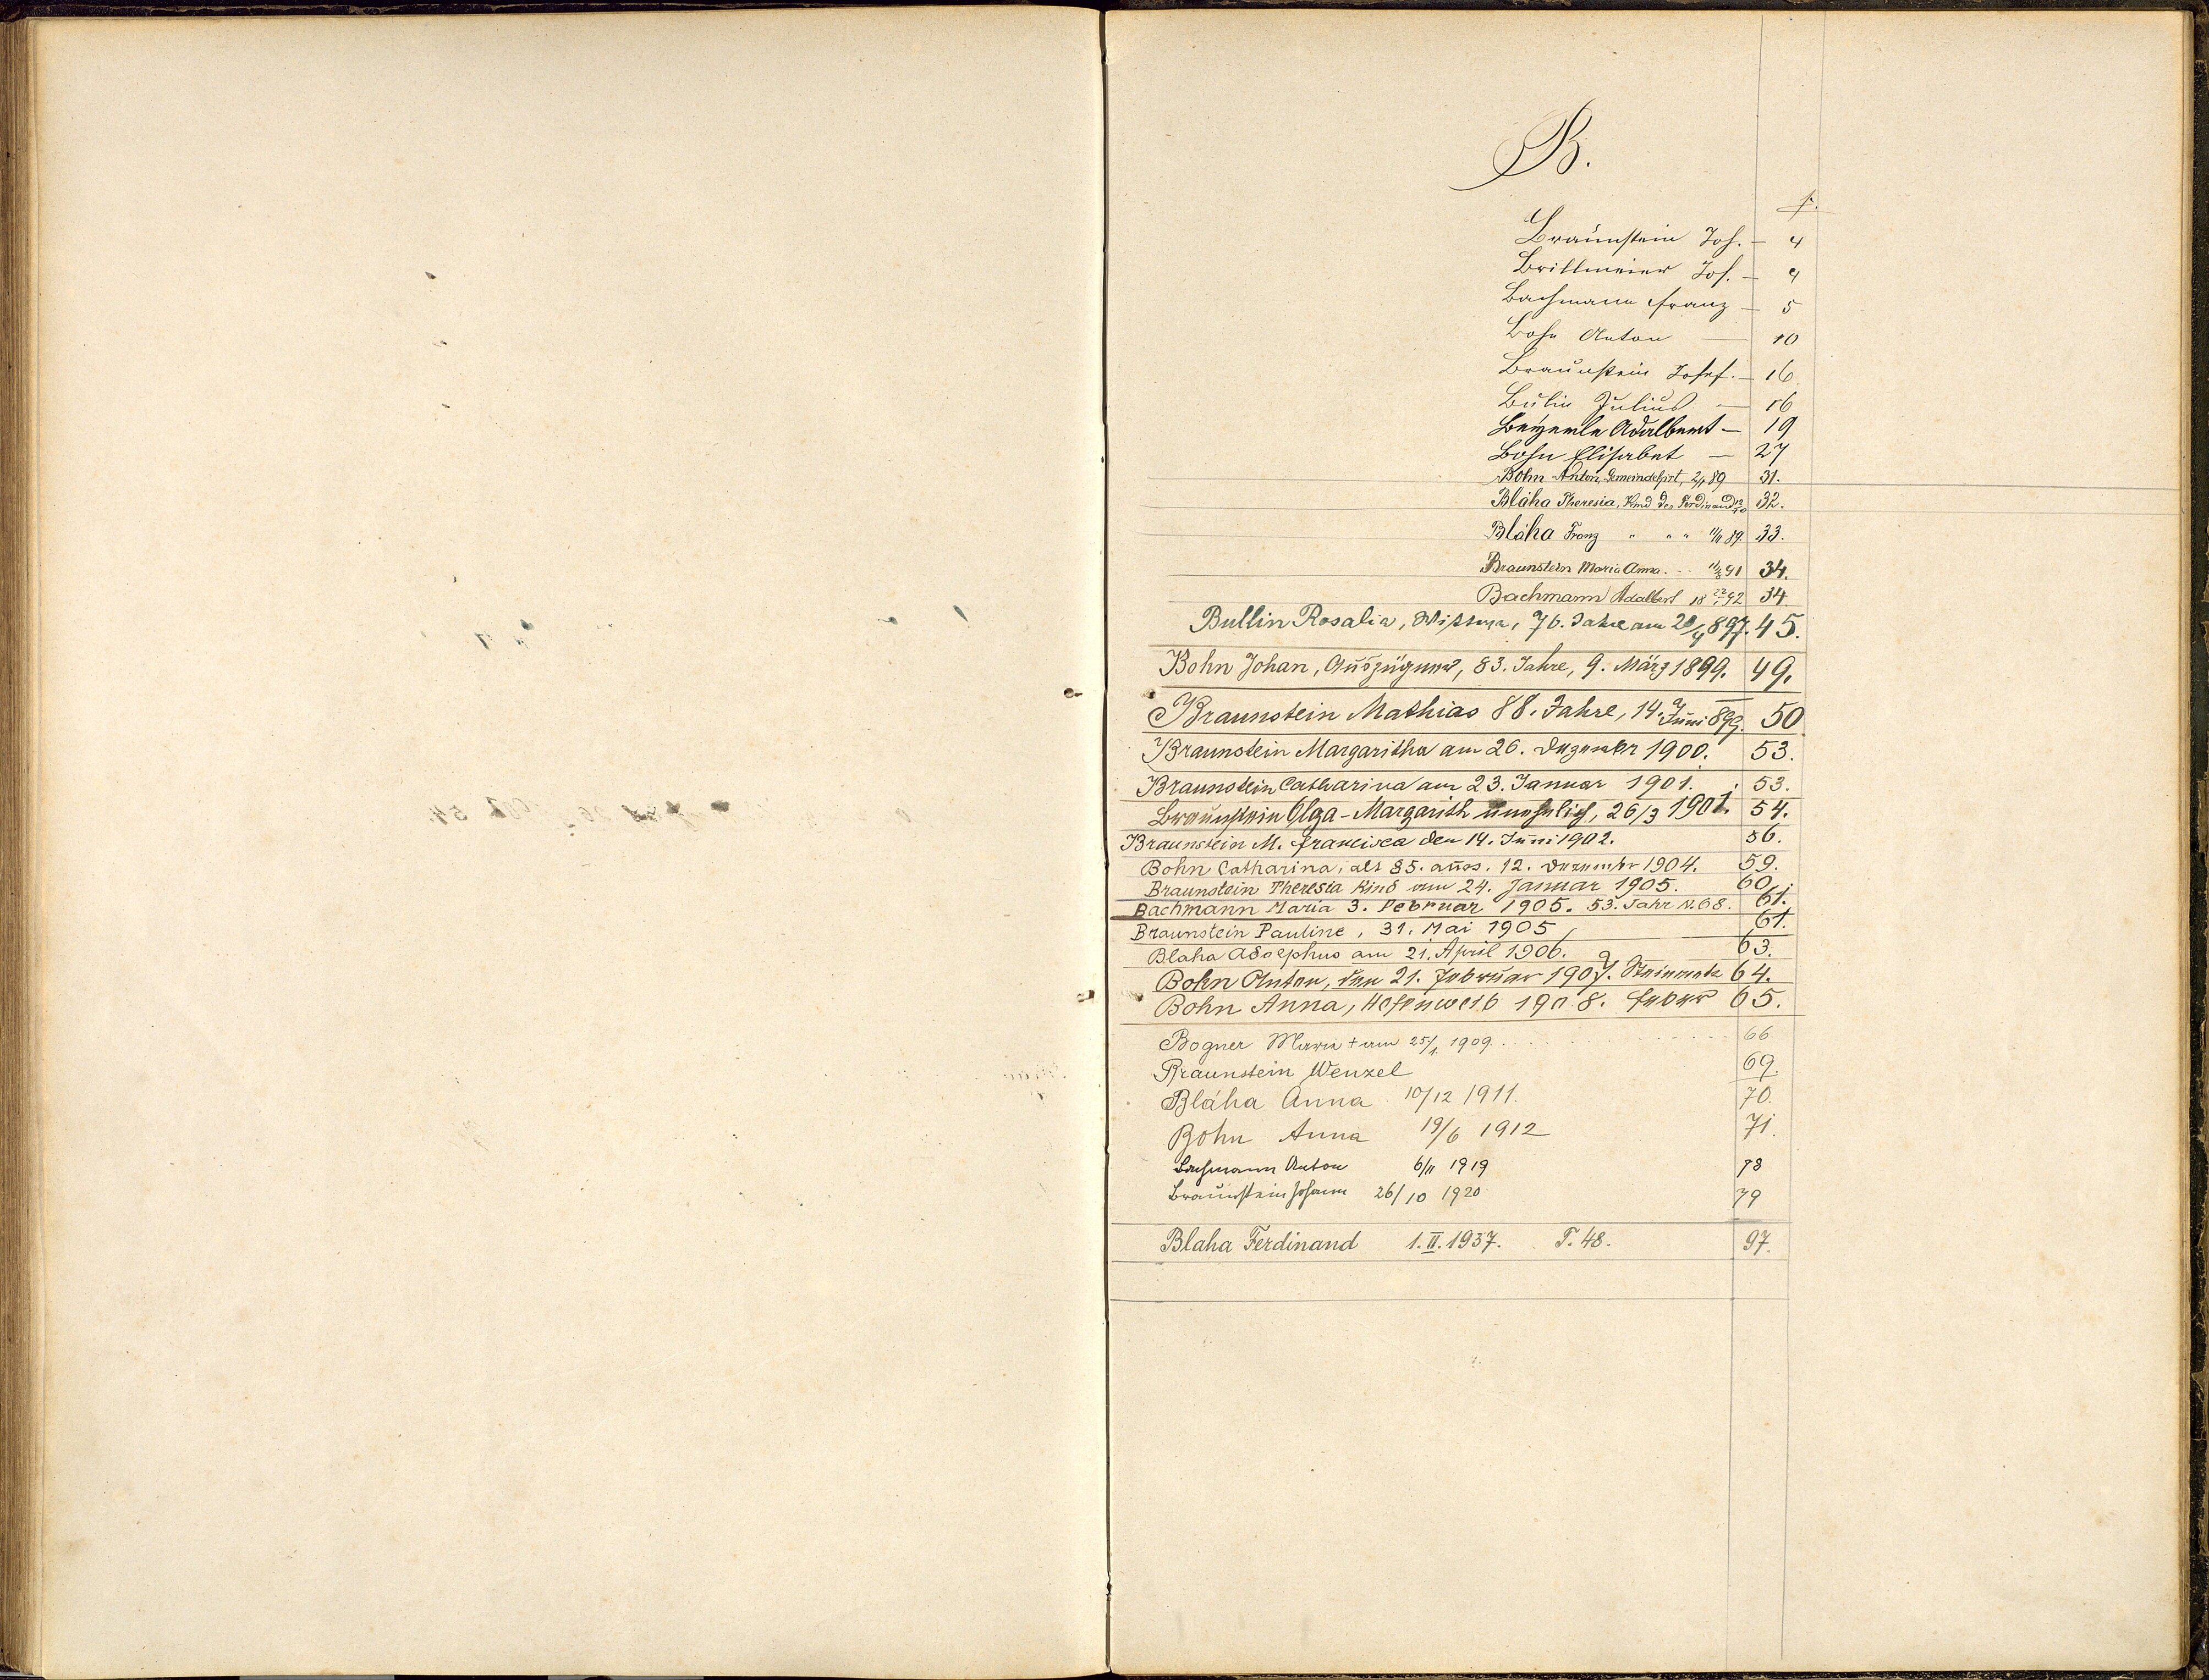 B.
f.
Braunstein Joh. – 4
Brittmeier Jos. – 4
Bachmann Franz – 5
Bohn Anton — 10
Braunstein Josef. – 16
Bulin Julius — 16
Beyerle Adalbert – 19
Bohn Elisabet — 27
Bohn Anton, 89 31.
Bláha Theresia, Kind des Ferdinand 32.
Bláha Franz " " " 89. 33.
Braunstein Maria Anna. 91 34.
Bachmann Adalbert 18 92 34.
Bullin Rosalia, Wittwe, 76. Jahre am 897. 45.
Bohn Johan, Auszügner, 83. Jahre, 9. März 1899. 49.
Braunstein Mathias 88. Jahre, 14. Juni 899. 50
Braunstein Margaritha am 26. Dezember 1900. 53.
Braunstein Catharina am 23. Januar 1901. 53.
Braunstein Olga-Margarith unehelich, 26/3 1901. 54.
Braunstein M. Francisca den 14. Juni 1902. 56.
Bohn Catharina, alt 85. 12. Dezember 1904. 59.
Braunstein Theresia Kind am 24. Januar 1905. 60.
Bachmann Maria 3. Februar 1905. 53. Jahr N. 68. 61.
Braunstein Pauline, 31. Mai 1905 61.
Blaha Adolphus am 21. April 1906. 63.
Bohn Anton, den 21. Februar 1907. Steinmetz 64.
Bohn Anna, 1908. 65.
Bogner Maria + am 25/1. 1909. 66
Braunstein Wenzel 69.
Bláha Anna 10/12 1911. 70.
Bohn Anna 19/6 1912 71.
Bachmann Anton 6/11 1919 78
Braunstein Johann 26/10 1920 79
Blaha Ferdinand 1. II. 1937. T. 48. 97.